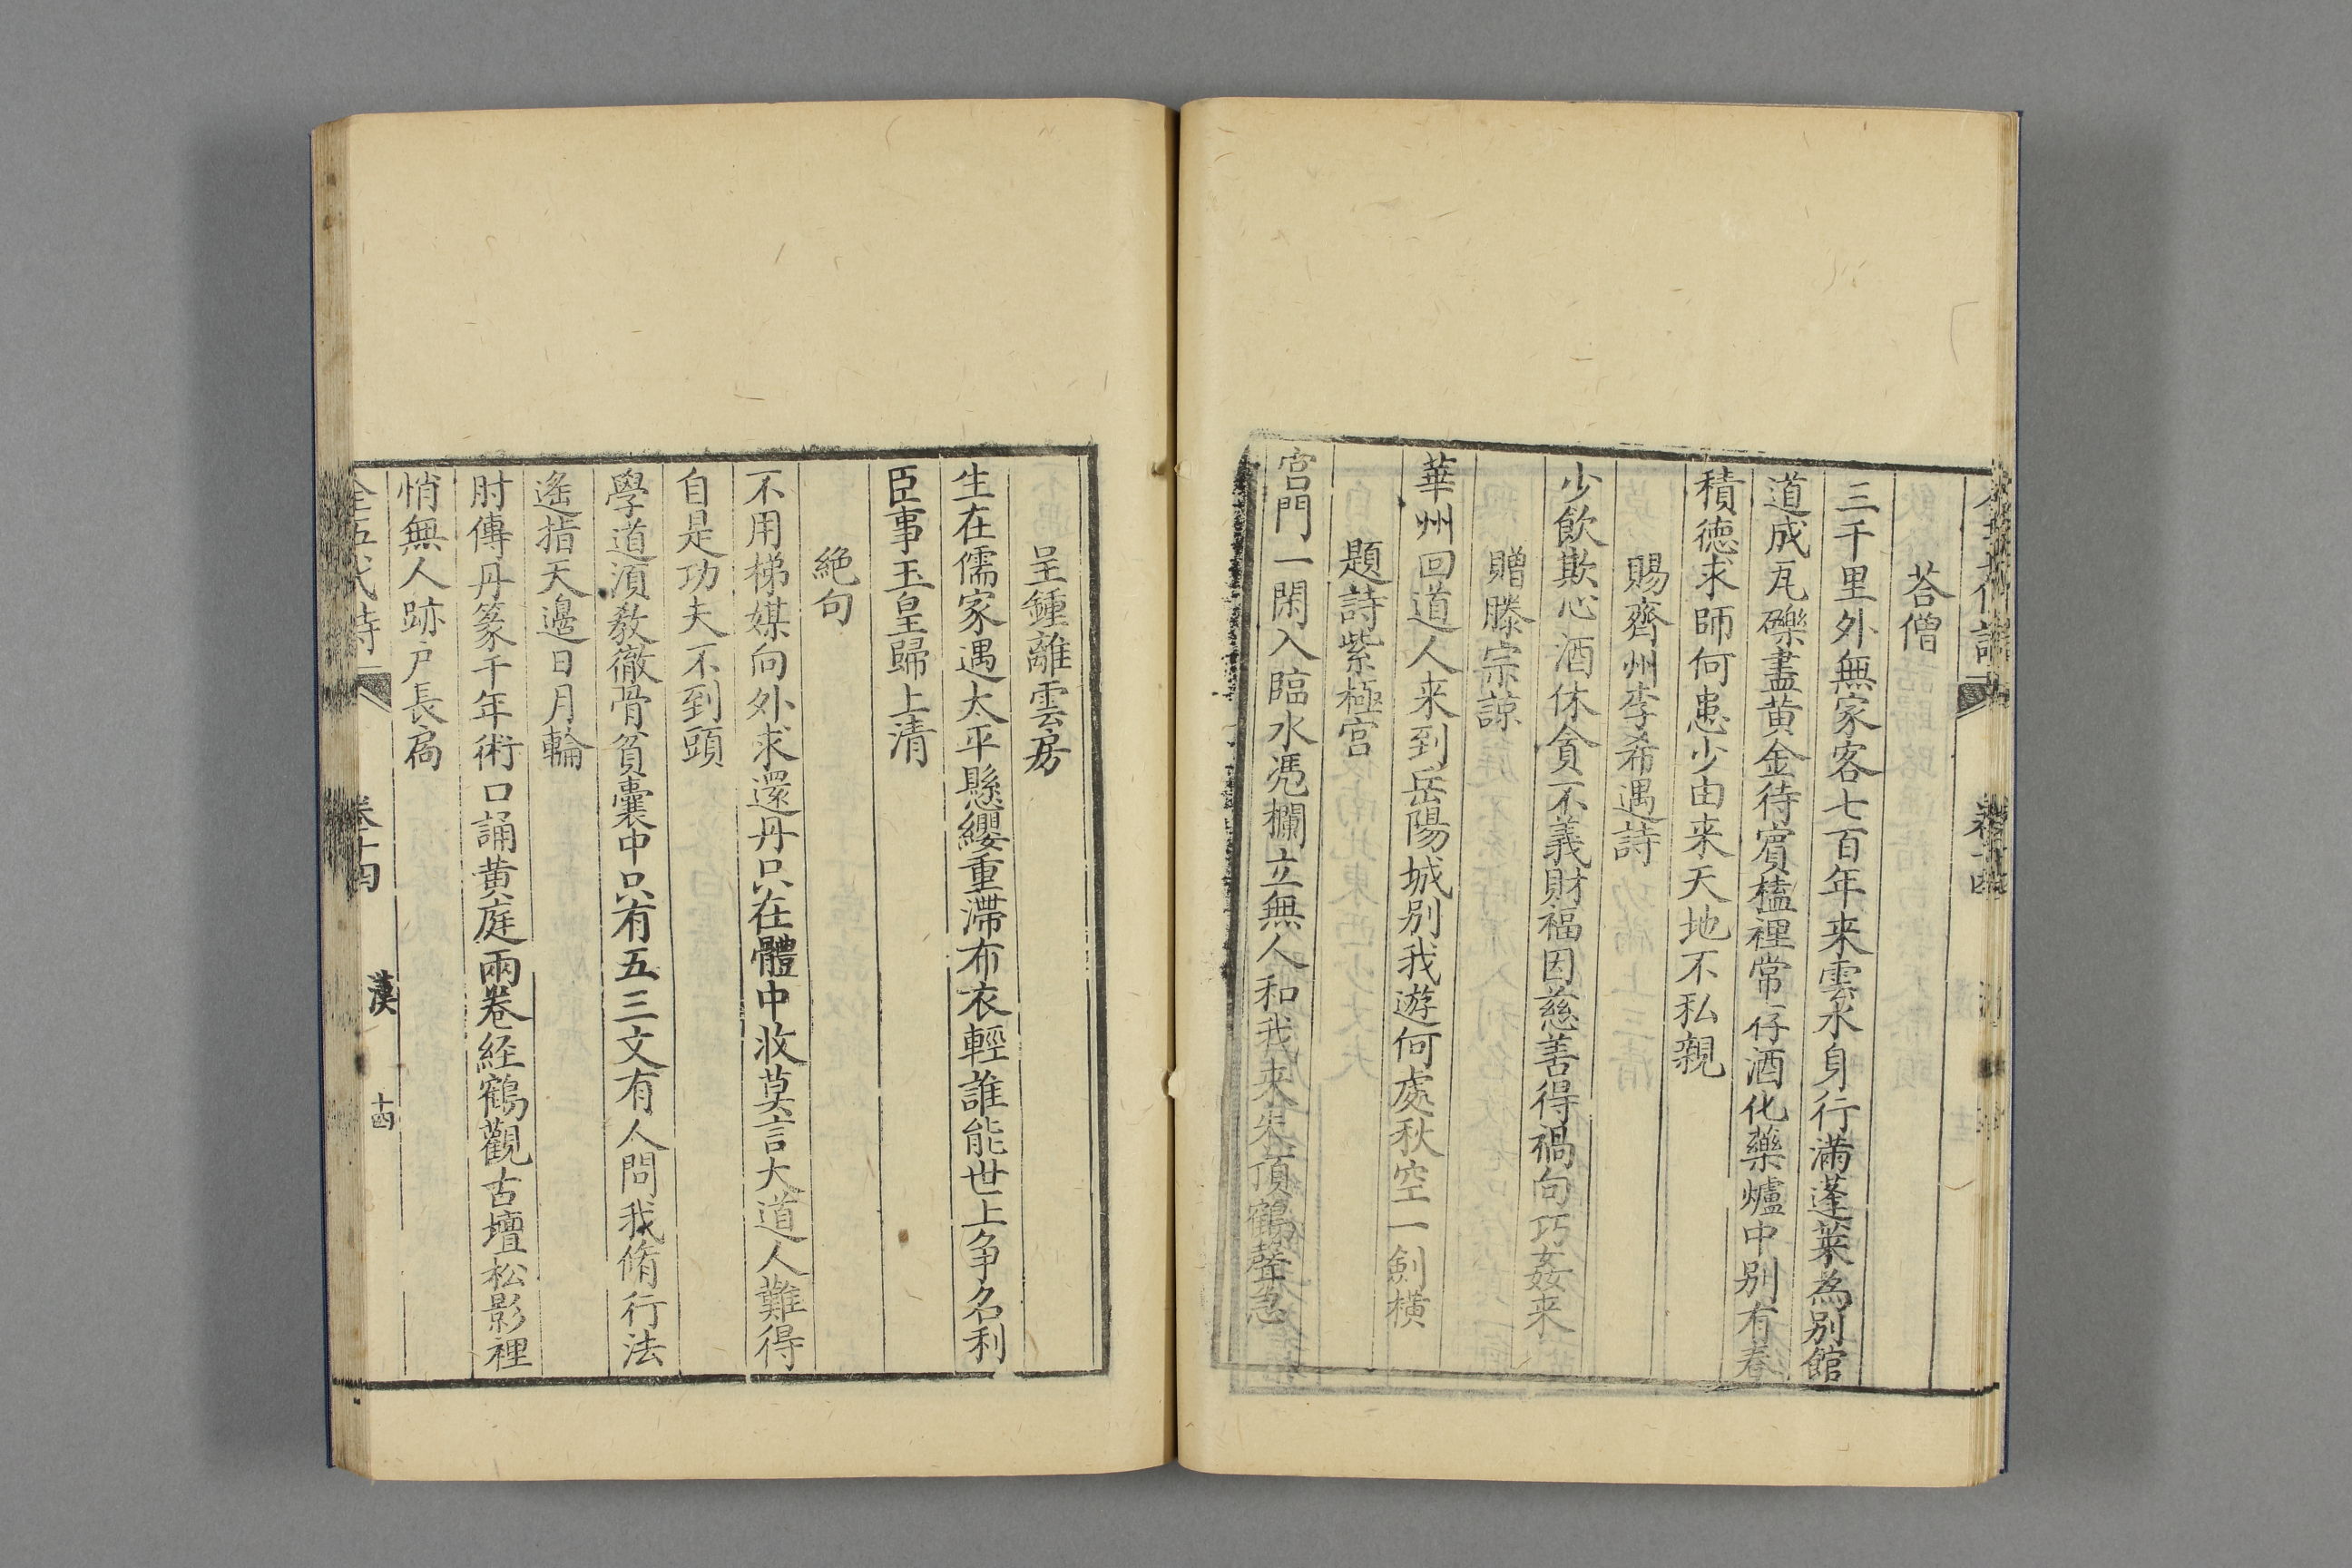 荅僧
三千里外無家客七百年来雲水身行滿蓬萊為別館
道成瓦礫盡黄金待賔榼裡常存酒化藥爐中別有春
積德求師何患少由来天地不私親
賜齊州李希遇詩
少飲欺心酒休貪不義財福因慈善得禍向巧姦来
贈滕宗諒
華州回道人来到岳陽城別我遊何處秋空一劍橫
題詩紫極宫
宫門一閑入臨水凴欄立無人知我来朱頂鶴聲急
呈鍾離雲房
生在儒家遇太平懸纓重滯布衣輕誰能世上争名利
臣事玉皇歸上清
絶句
不用梯媒向外求還丹只在體中收莫言大道人難得
自是功夫不到頭
學道湏教徹骨貧囊中只有五三文有人問我脩行法
遙指天邊日月輪
肘傳丹篆千年術口誦黄庭兩卷経鶴觀古壇松影裡
悄無人跡户長扄
全五代詩 卷十四 漢 十四